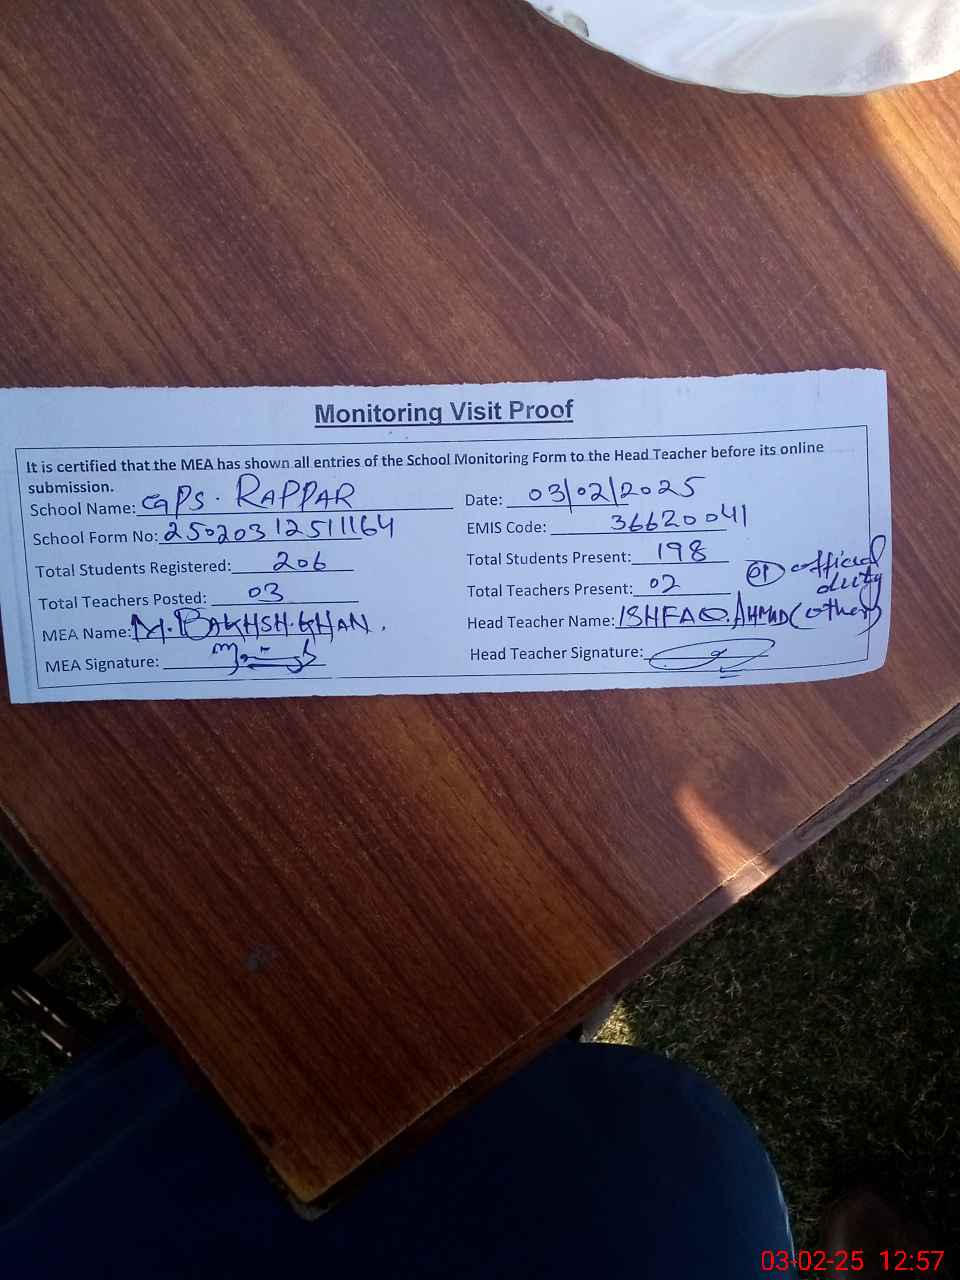 Monitoring Visit Proof
It is certified that the MEA has shown all entries of the School Monitoring Form to the Head Teacher before its online
submission.
School Name: GPS. RAPPAR Date: 03/02/2025
School Form No: 25020312511164 EMIS Code: 36620041
Total Students Registered: 206 Total Students Present: 198
Total Teachers Posted: 03 Total Teachers Present: 02 01 official
duty
MEA Name: M. BAKHSH. KHAN. Head Teacher Name: ISHFAQ. AHMAD (other)
MEA Signature: Head Teacher Signature:
03-02-25 12:57